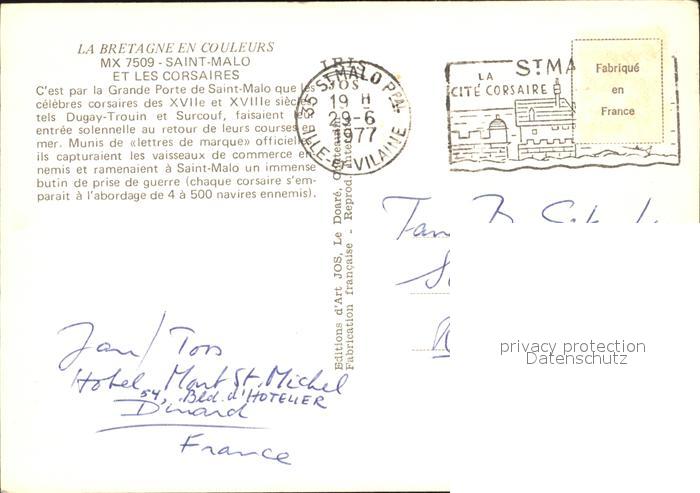 LA BRETAGNE EN COULEURS
MX 7509 - SAINT-MALO
ET LES CORSAIRES
C'est par la Grande Porte de Saint-Malo que les
célèbres corsaires des XVIIe et XVIIIe siècles
tels Dugay-Trouin et Surcouf, faisaient
entrée solennelle au retour de leurs courses
mer. Munis de «lettres de marque» officielles
ils capturaient les vaisseaux de commerce en-
nemis et ramenaient à Saint-Malo un immense
butin de prise de guerre (chaque corsaire s'em-
parait à l'abordage de 4 à 500 navires ennemis).
IRIS
JOS
35 ST MALO Ppal
19 H
29-6
1977
ILLE-ET-VILAINE
ST MA
LA
CITÉ CORSAIRE
Fabriqué
en
France
Editions d'Art JOS, Le Doaré,
Fabrication française - Reprod.
Jan / Toos
Hotel Mont St. Michel
54, Bld. d'HOTELIER
Dinard
France
privacy protection
Datenschutz